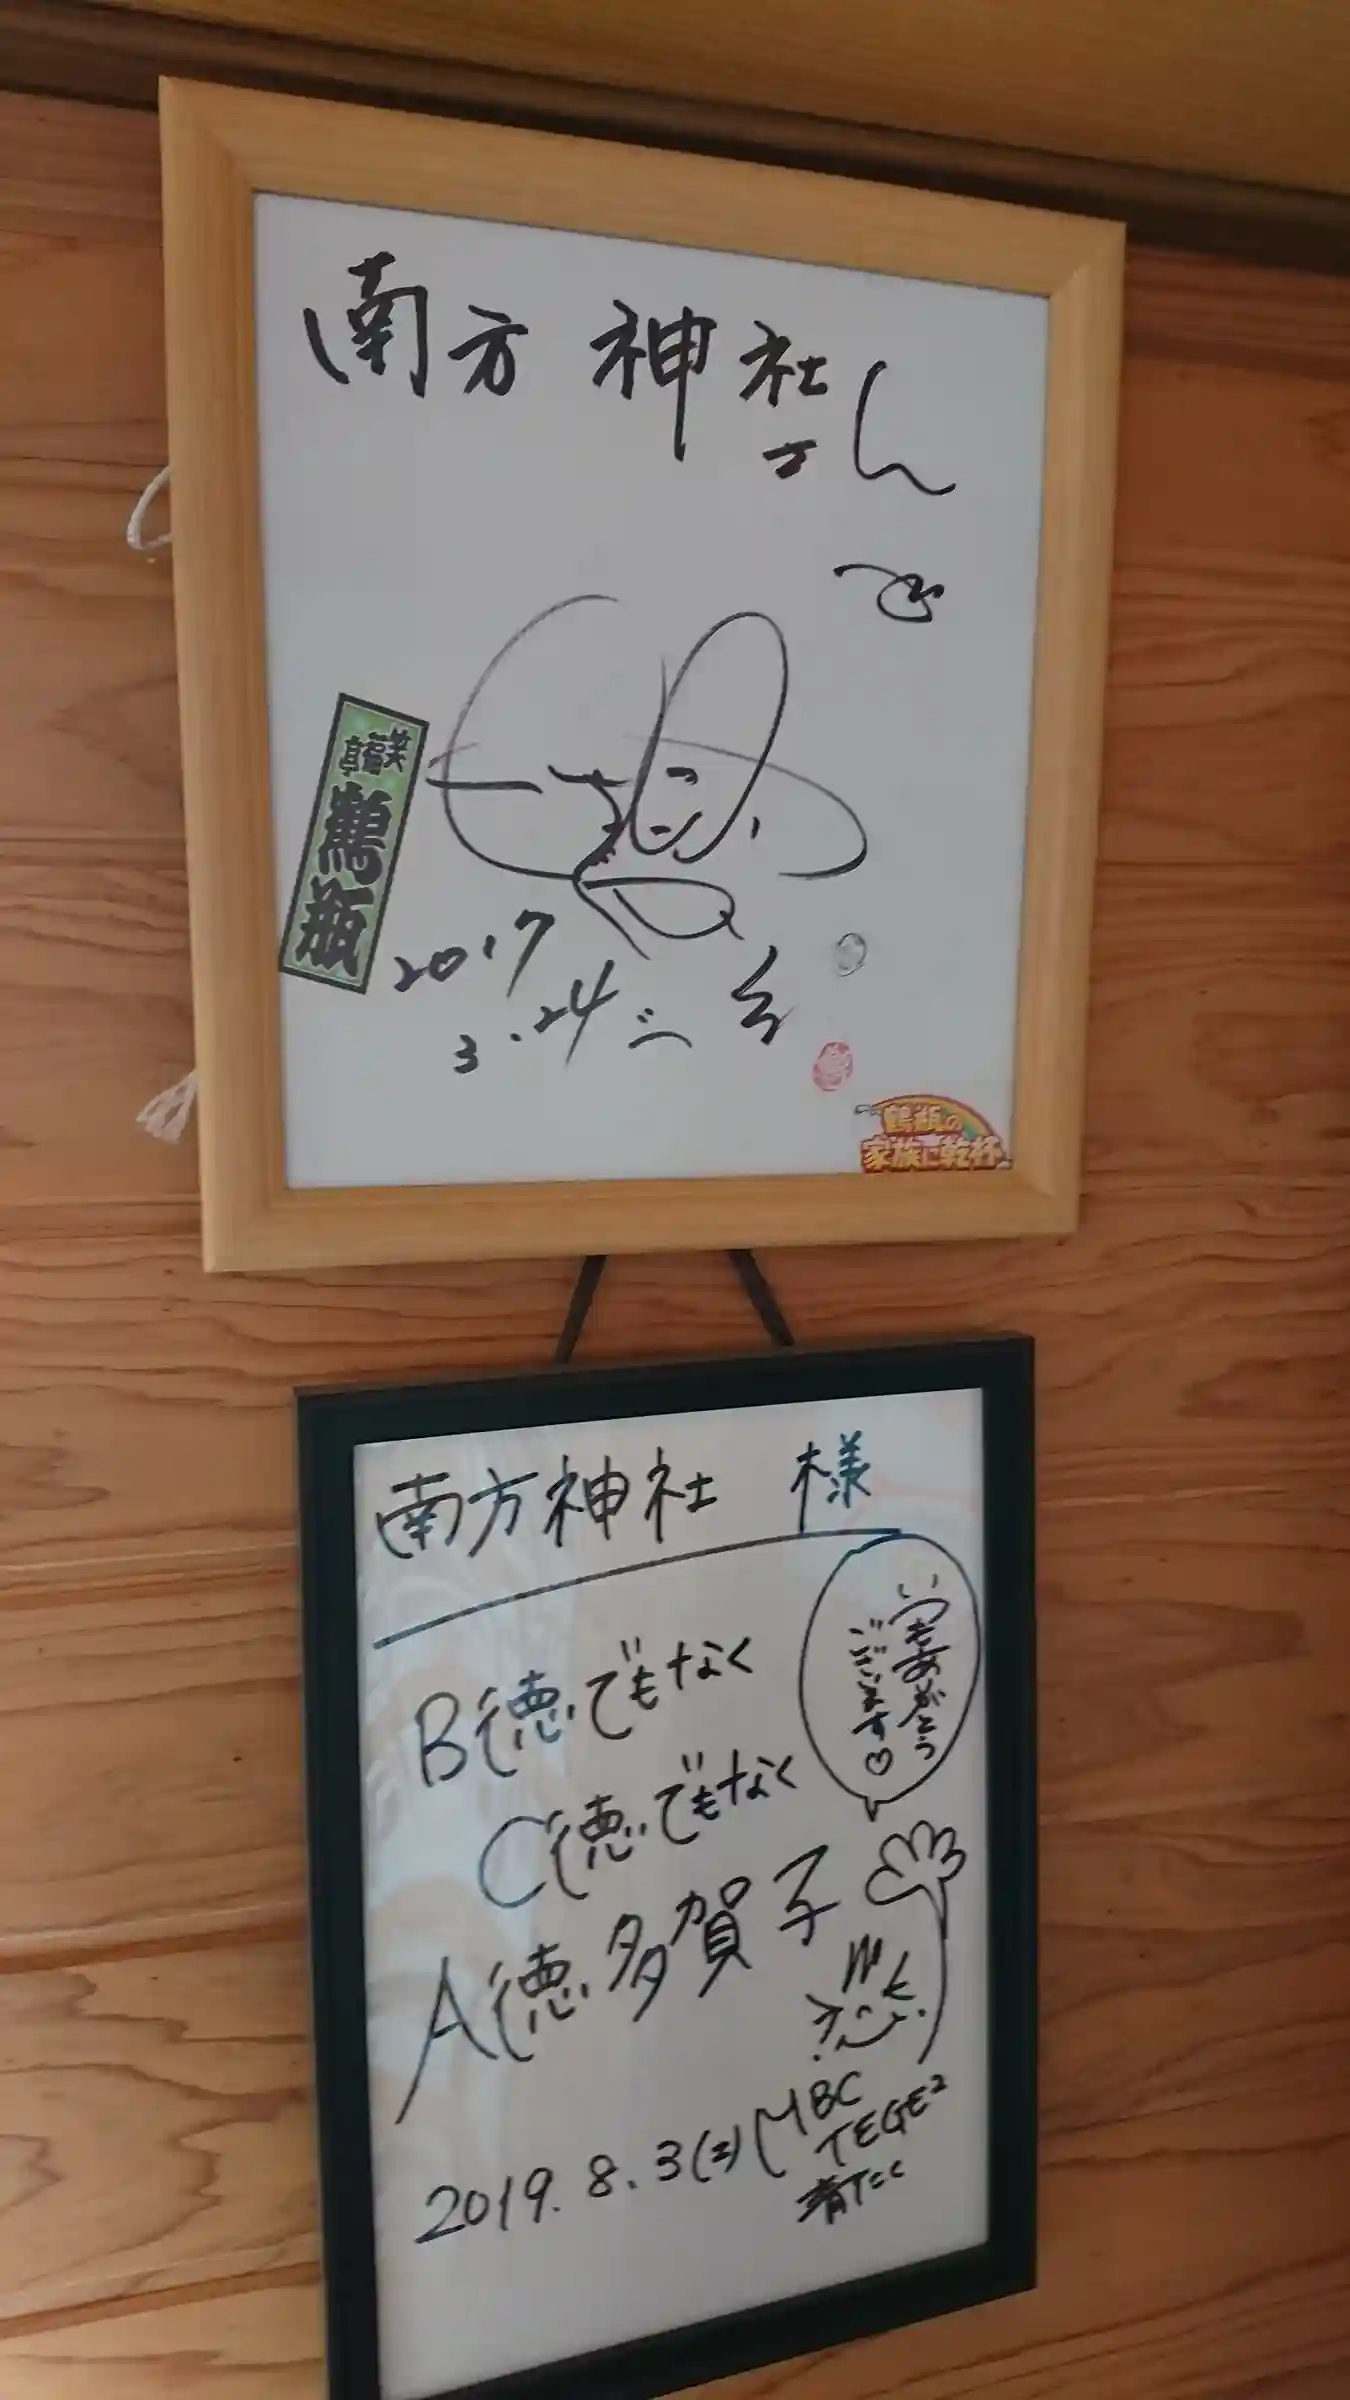 南方神社さん
で
笑福亭
鶴瓶
2017
3.24
鶴瓶の
家族に乾杯
南方神社 様
いつもありがとう
ございます♡
B徳でもなく
C徳でもなく
A徳多賀子
2019.8.3(土)
MBC
TEGE2